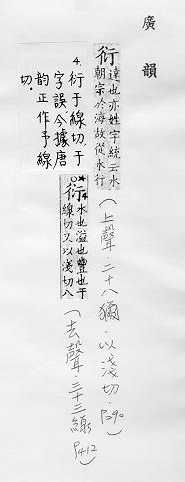 廣韻
衍達也亦姓字統云水
朝宗於海故從水行
(上聲．二十八獮．以淺切．P290)
衍*4水也溢也豐也于
線切又以淺切八
(去聲．三十三線 P412)
4.衍于線切于
字誤今據唐
韻正作予線
切.